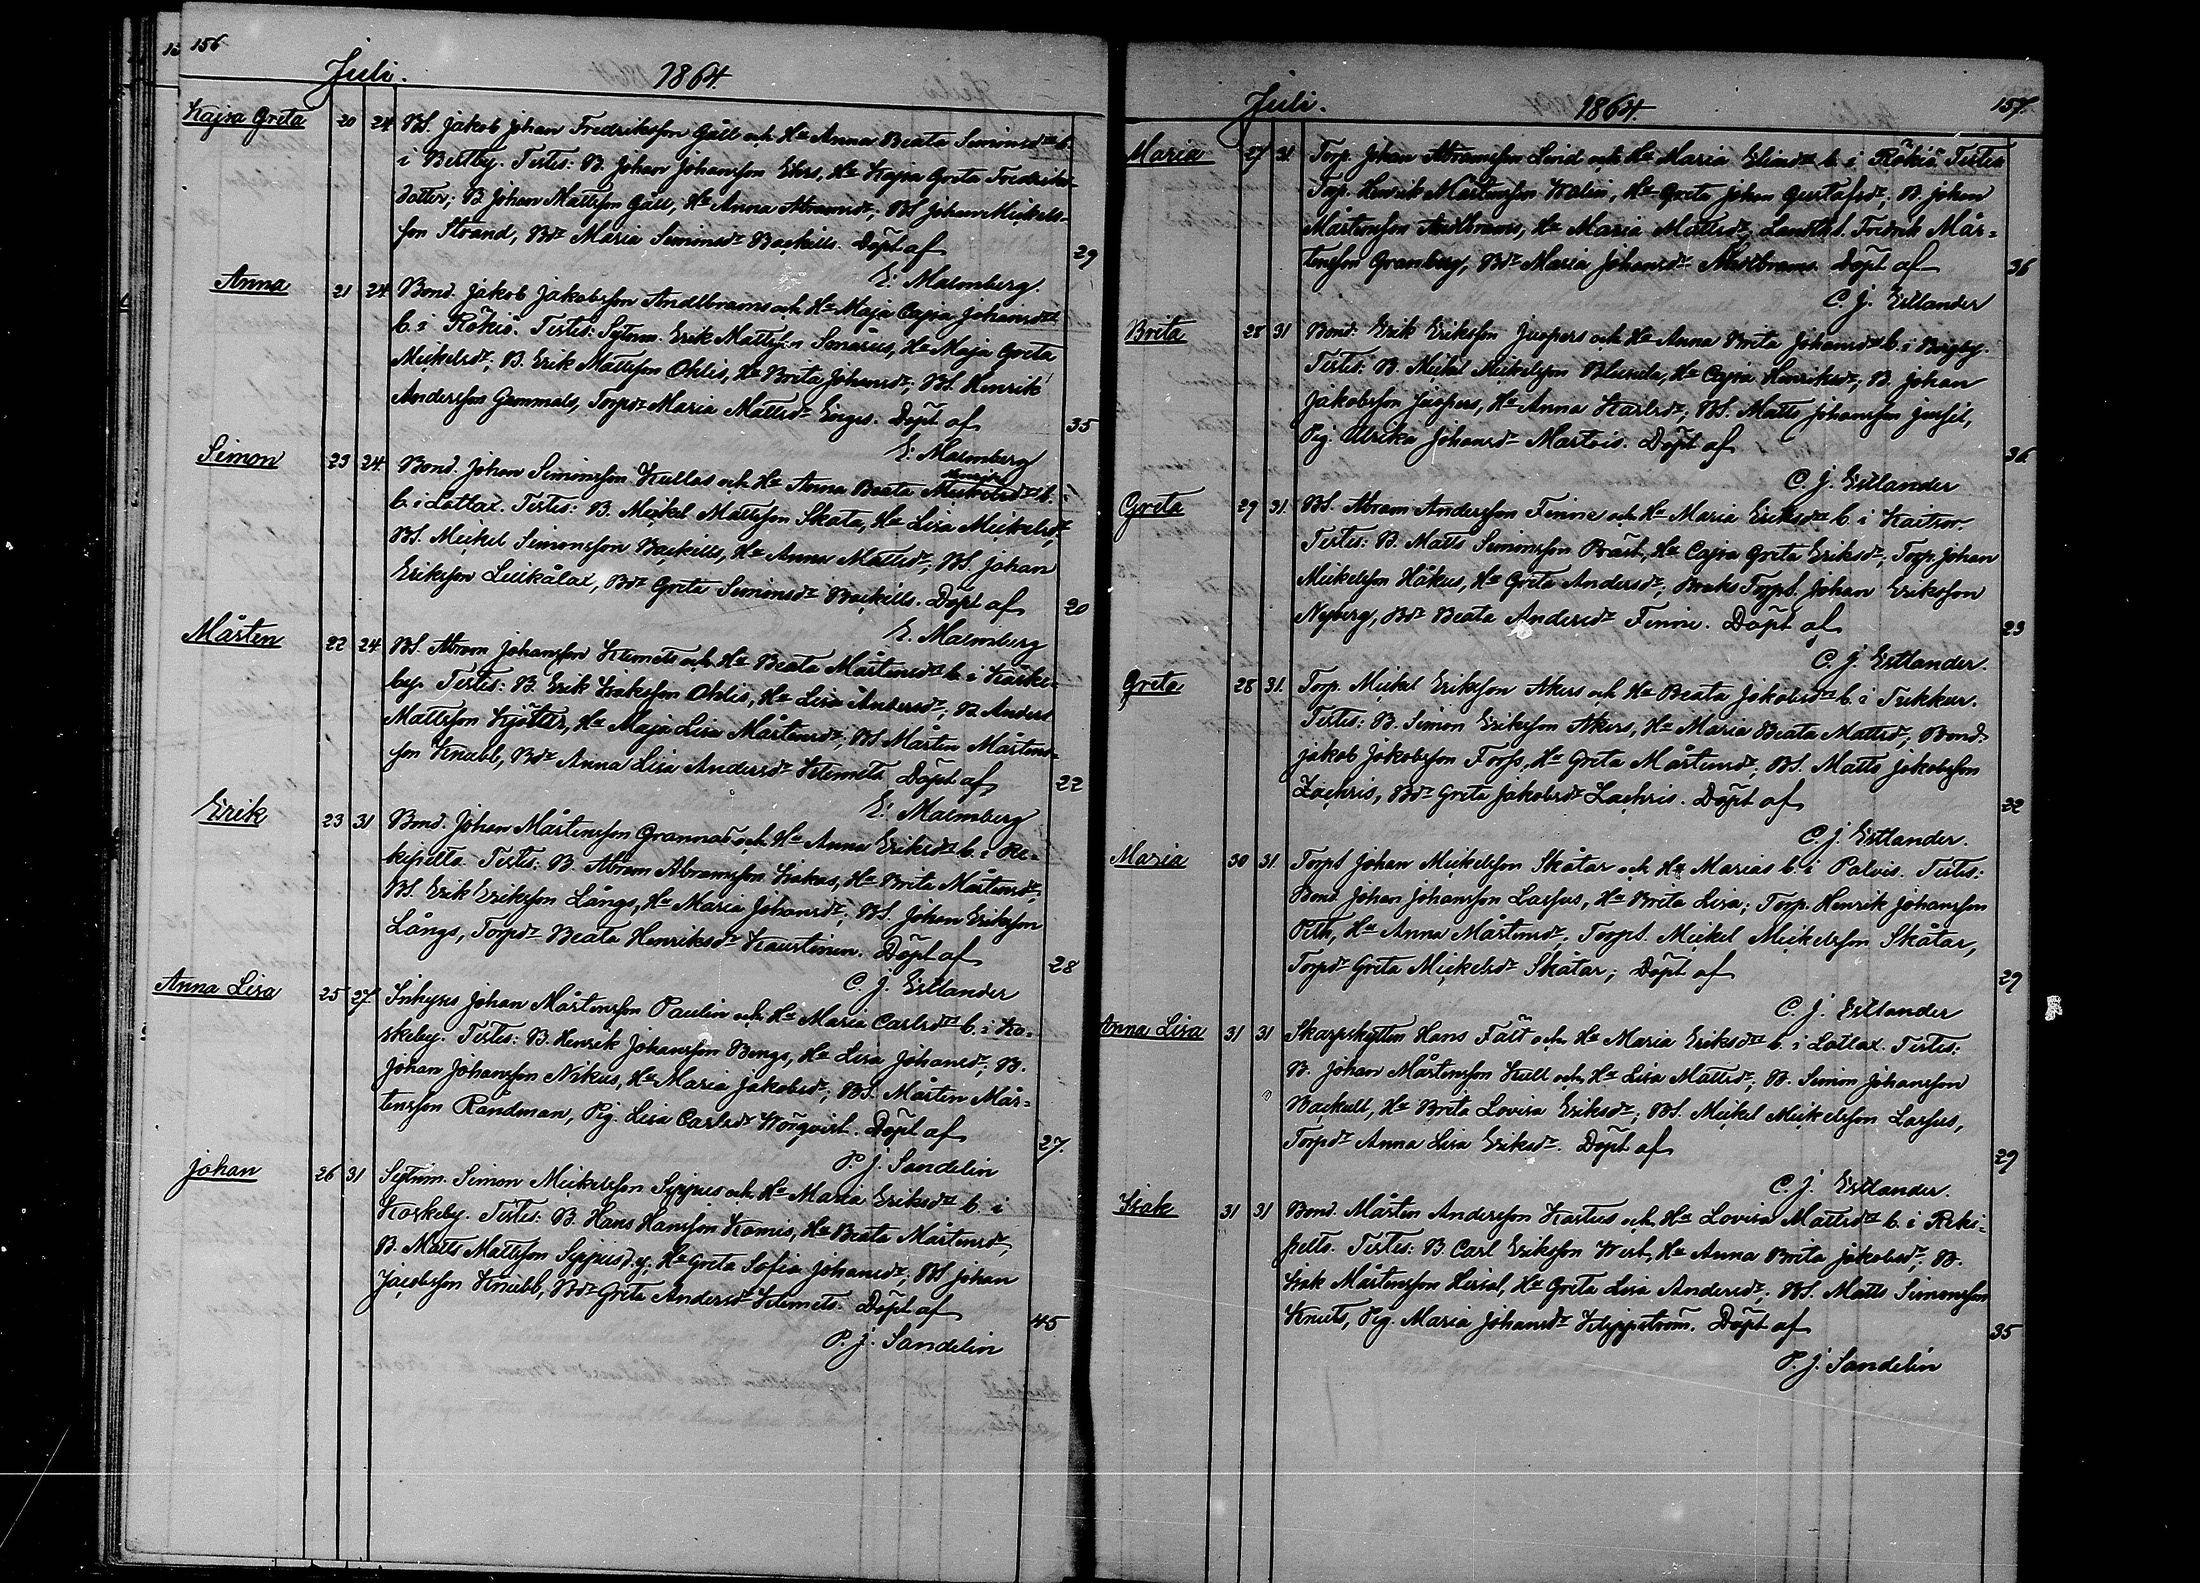 156
Juli. 1864.
Kajsa Greta 20 24 BS. Jakob Johan Fredriksson Gåll och Hu Anna Beata Simonsdr b.
i Bertby. Testes: B. Johan Johansson Ehrs, Hu Kajsa Greta Fredriks-
dotter; B. Johan Mattsson Gåll, Hu Anna Abramsdr; BS Johan Mickels-
son Strand, Bdr Maria Simonsdr Backills. Döpt af 29
E. Malmberg.
Anna 21 24 Bond. Jakob Jakobsson Andlbrams och Hu Maja Cajsa Johansdr
b. i Rökiö. Testes: Sytnm. Erik Mattss:n Smärus, Hu Maja Greta
Mickelsdr; B. Erik Mattsson Ohlis, Hu Brita Johansdr; BS. Henrik
Andersson Gammals, Torpdr Maria Mattsdr Enges. Döpt af 35
E. Malmberg
Simon 23 24 Bond. Johan Simonsson Kullas och Hu Anna Beata Mickelsdr b.
b. i Lottax. Testes: B. Mickel Mattsson Skata, Hu Lisa Mickelsdr,
BS. Mickel Simonsson Backills, Hu Anna Mattsdr; BS. Johan
Eriksson Lillkålax, Bdr Greta Simonsdr Backills. Döpt af 20
E. Malmberg
Mårten 22 24 BS. Abram Johansson Klemets och Hu Beata Mårtensdr b. i Kaske-
by. Testes: B. Erik Isaksson Ohlis, Hu Lisa Andersdr; B. Anders
Mattsson Kjötter, Hu Maja Lisa Mårtensdr; BS Mårten Mårtens-
son Knabb, Bdr Anna Lisa Andersdr Klemets. Döpt af 22
E. Malmberg
Erik 23 31 Bond. Johan Mårtensson Grannas och Hu Anna Eriksdr b. i Re-
kipelta. Testes: B. Abram Abramsson Isakas, Hu Brita Mårtensdr;
BS. Erik Eriksson Långs, Hu Maria Johansdr; BS. Johan Eriksson
Långs, Torpdr Beata Henriksdr Kaustinen. Döpt af 28
C. J. Estlander
Anna Lisa 25 27 Inhyses Johan Mårtensson Paulin och Hu Maria Carlsdr b. i Ko-
skeby. Testes: B. Henrik Johansson Bengs, Hu Lisa Johansdr; B.
Johan Johansson Nikus, Hu Maria Jakobsdr; BS. Mårten Mår-
tensson Rändman, Pig. Lisa Carlsdr Wörqvist. Döpt af 27.
P. J. Sandelin
Johan 26 31 Sytnm. Simon Mickelsson Sippus och Hu Maria Eriksdr b. i
Koskeby. Testes: B. Hans Hansson Komis, Hu Beata Mårtensdr,
B. Matts Mattsson Sippus d.y. Hu Greta Sofia Johansdr; BS Johan
Jacobsson Knubb, Bdr Greta Andersdr Klemets. Döpt af 45
P. J. Sandelin
157.
Juli. 1864.
Maria 27 31 Torp. Johan Abramsson Lind och Hu Maria Eliaedr b. i Rökiö. Testes
Torp. Henrik Mårtensson Kalin, Hu Greta Johan Gustafsdr; B. Johan
Mårtensson Andlbrams, Hu Maria Mattsdr; Landtbd. Fredrik Mår-
tensson Granberg, Bdr Maria Johansdr Andlbrams. Döpt af 36
C. J. Estlander
Brita 28 31 Bond. Erik Eriksson Juspers och Hu Anna Brita Johansdr b. i Bergby.
Testes: B. Mickel Mickelsson Blusula, Hu Cajsa Henriksdr; B. Johan
Jakobsson Juspers, Hu Anna Karlsdr; BS. Matts Johansson Jussil,
Pig. Ulrika Johansdr Martois. Döpt af 36
C. J. Estlander
Greta 29 31. BS. Abram Andersson Finne och Hu Maria Eriksdr b. i Kaitsor.
Testes: B. Matts Simonsson Präst, Hu Cajsa Greta Eriksdr; Torp. Johan
Mickelsson Håkus, Hu Greta Andersdr; Bruks Torps. Johan Eriksson
Nyberg, Bdr Beata Andersdr Finne. Döpt af 23
C. J. Estlander.
Greta 28 31. Torp. Mickel Eriksson Akers och Hu Beata Jakobsdr b. i Tukkur.
Testes: B. Simon Eriksson Akers, Hu Maria Beata Mattsdr; Bond.
Jakob Jakobsson Forss, Hu Greta Mårtensdr; BS. Matts Jakobsson
Zachris, Bdr Greta Jakobsdr Zachris. Döpt af 22
C. J. Estlander.
Maria 30 31 Torps Johan Mickelsson Skåtar och Hu Marias b. i Palvis. Testes:
Bond. Johan Johansson Lassus, Hu Brita Lisa; Torp. Henrik Johansson
Peth, Hu Anna Mårtensdr; Torps. Mickel Mickelsson Skåtar,
Torpdr Greta Mickelsdr Skåtar; Döpt af 29
C. J. Estlander
Anna Lisa 31 31 Skarpskytten Hans Fält och Hu Maria Eriksdr b. i Lottax. Testes:
B. Johan Mårtensson Kull och Hu Lisa Mattsdr; B. Simon Johansson
Backull, Hu Brita Lovisa Eriksdr; BS. Mickel Mickelsson Lassus,
Torpdr Anna Lisa Eriksdr. Döpt af 29
C. J. Estlander.
Isak 31 31 Bond. Mårten Andersson Kartus och Hu Lovisa Mattsdr b. i Reki-
pelto. Testes: B. Carl Eriksson West, Hu Anna Brita Jakobsdr; B.
Isak Mårtensson Liisal, Hu Greta Lisa Andersdr; BS. Matts Simonsson
Knuts, Pig. Maria Johansdr Klippström. Döpt af 35
P. J. Sandelin